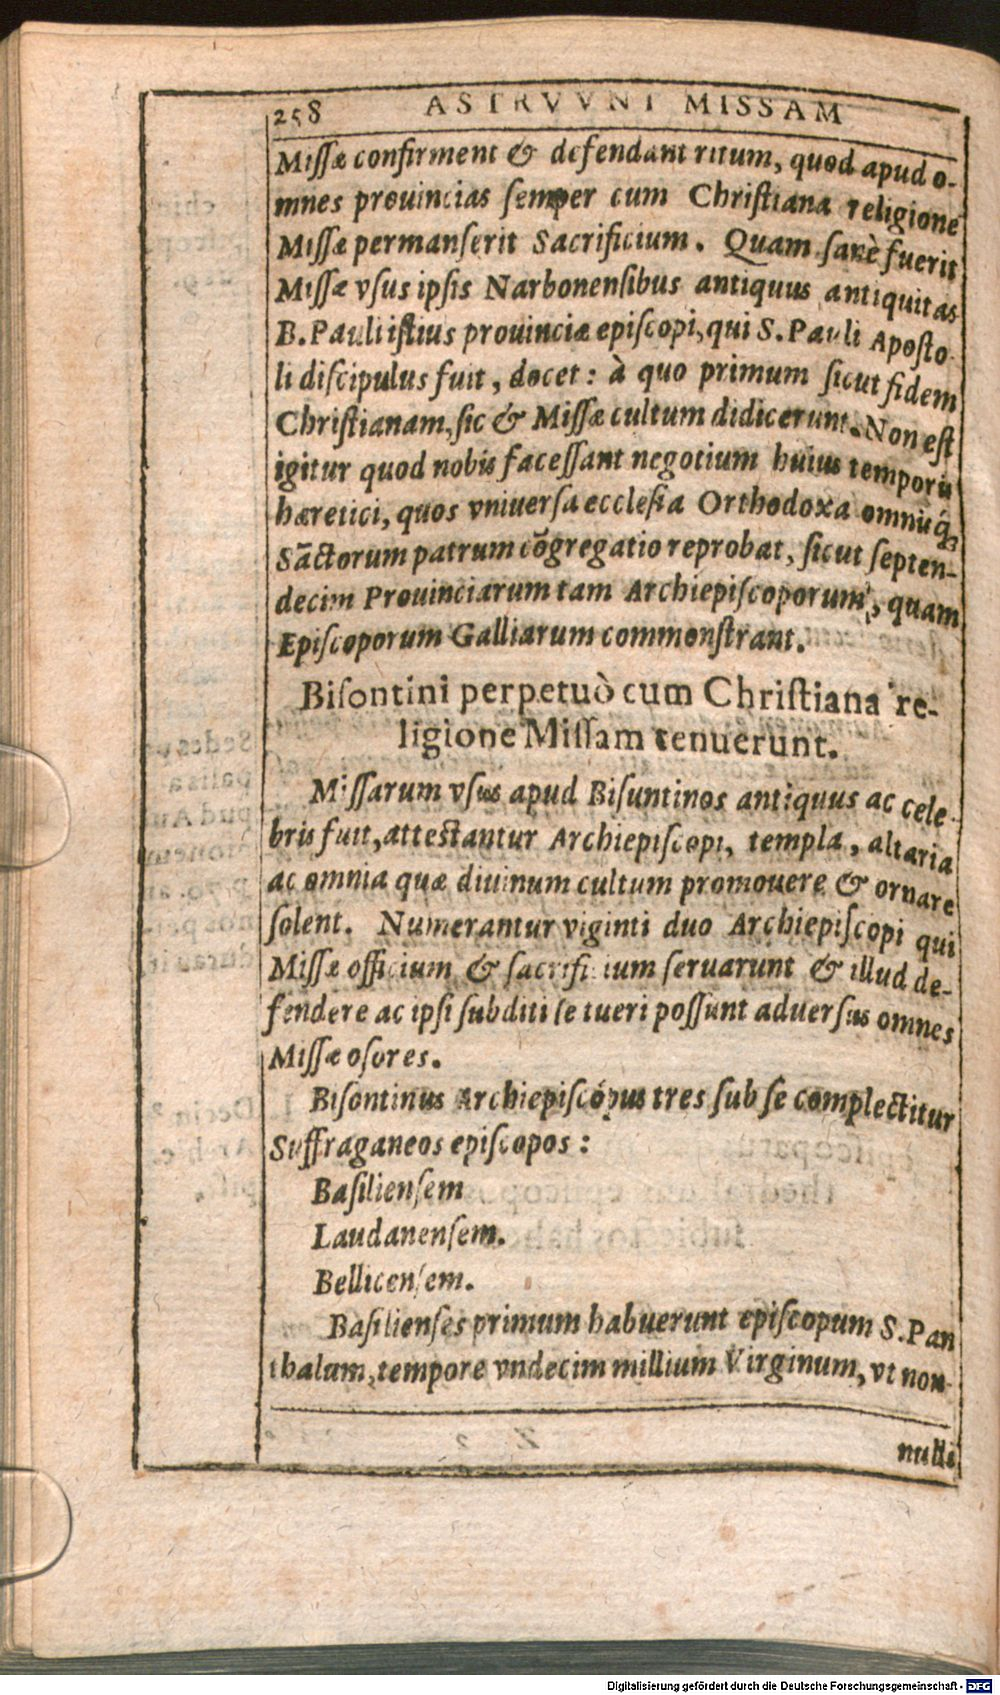 258 ASTRVVNT MISSAM
Missæ confirment & defendant ritum, quod apud o-
mnes prouincias semper cum Christiana religione
Missæ permanserit Sacrificium. Quam sanè fuerit
Missæ vsus ipsis Narbonensibus antiquus antiquitas
B. Pauli istius prouinciæ episcopi, qui S. Pauli Aposto
li discipulus fuit, docet: à quo primum sicut fidem
Christianam, sic & Missæ cultum didicerunt. Non est
igitur quod nobis facessant negotium huius temporis
hæretici, quos vniuersa ecclesia Orthodoxa omniuq́;
Sāctorum patrum cōgregatio reprobat, sicut septen-
decim Prouinciarum tam Archiepiscoporum, quam
Episcoporum Galliarum commonstrant.
Bisontini perpetuò cum Christiana re-
ligione Missam tenuerunt.
Missarum vsus apud Bisuntinos antiquus ac cele-
bris fuit, attestantur Archiepiscopi, templa, altaria
ac omnia quæ diuinum cultum promouere & ornare
solent. Numerantur viginti duo Archiepiscopi qui
Missæ officium & sacrificium seruarunt & illud de-
fendere ac ipsi subditi se tueri possunt aduersus omnes
Missæ osores.
Bisontinus Archiepiscopus tres sub se complectitur
Suffraganeos episcopos:
Basiliensem
Laudanensem.
Bellicensem.
Basilienses primum habuerunt episcopum S. Pan
thalum, tempore vndecim millium Virginum, vt non-
nulli
Digitalisierung gefördert durch die Deutsche Forschungsgemeinschaft - DFG